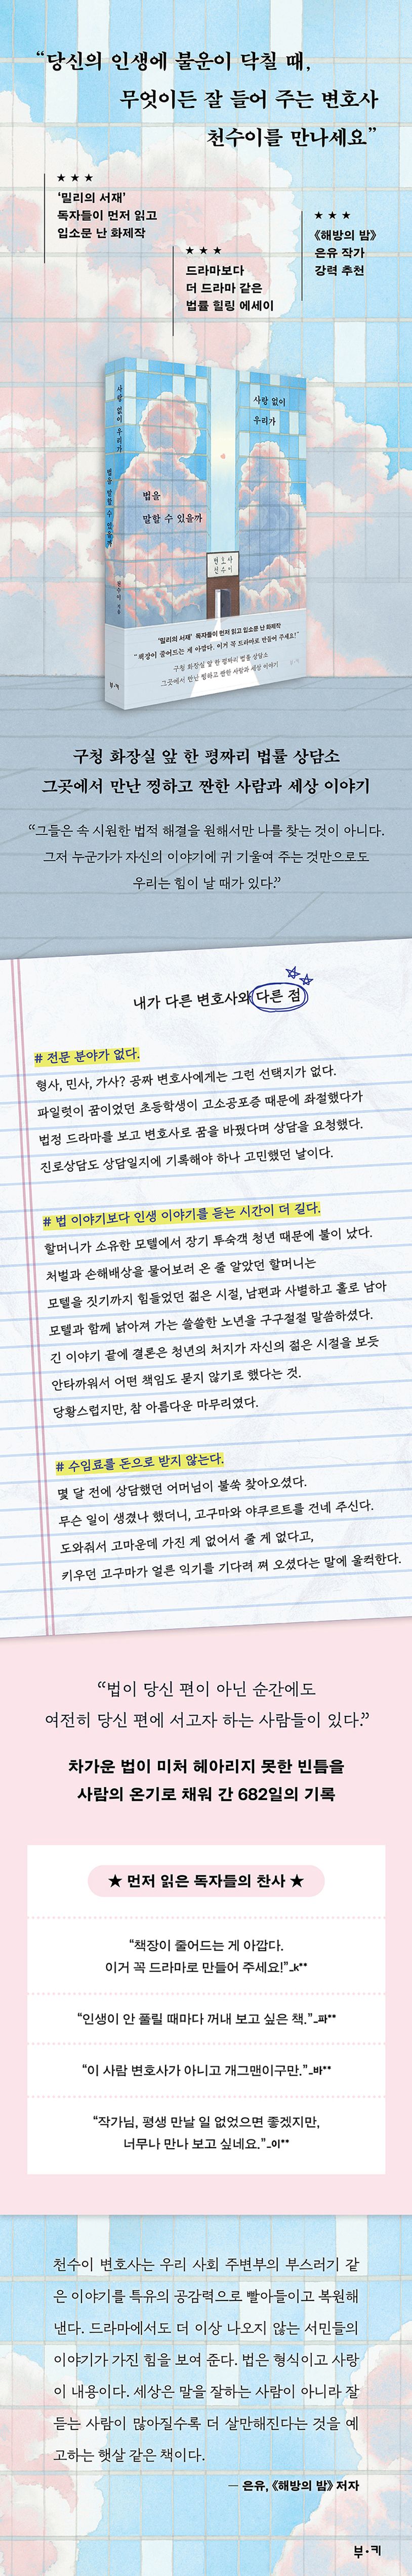 “당신의 인생에 불운이 닥칠 때,
무엇이든 잘 들어 주는 변호사
천수이를 만나세요”
★ ★ ★
‘밀리의 서재’
독자들이 먼저 읽고
입소문 난 화제작
★ ★ ★
드라마보다
더 드라마 같은
법률 힐링 에세이
★ ★ ★
《해방의 밤》
은유 작가
강력 추천
사랑 없이 우리가
법을 말할 수 있을까
천수이 지음
부·키
사랑 없이
우리가
법을
말할 수 있을까
변호사
천수이
‘밀리의 서재’ 독자들이 먼저 읽고 입소문 난 화제작
“책장이 줄어드는 게 아깝다. 이거 꼭 드라마로 만들어 주세요!”
구청 화장실 앞 한 평짜리 법률 상담소
그곳에서 만난 찡하고 짠한 사람과 세상 이야기
부·키
구청 화장실 앞 한 평짜리 법률 상담소
그곳에서 만난 찡하고 짠한 사람과 세상 이야기
“그들은 속 시원한 법적 해결을 원해서만 나를 찾는 것이 아니다.
그저 누군가가 자신의 이야기에 귀 기울여 주는 것만으로도
우리는 힘이 날 때가 있다.”
내가 다른 변호사와 다른 점
# 전문 분야가 없다.
형사, 민사, 가사? 공짜 변호사에게는 그런 선택지가 없다.
파일럿이 꿈이었던 초등학생이 고소공포증 때문에 좌절했다가
법정 드라마를 보고 변호사로 꿈을 바꿨다며 상담을 요청했다.
진로상담도 상담일지에 기록해야 하나 고민했던 날이다.
# 법 이야기보다 인생 이야기를 듣는 시간이 더 길다.
할머니가 소유한 모텔에서 장기 투숙객 청년 때문에 불이 났다.
처벌과 손해배상을 물어보러 온 줄 알았던 할머니는
모텔을 짓기까지 힘들었던 젊은 시절, 남편과 사별하고 홀로 남아
모텔과 함께 낡아져 가는 쓸쓸한 노년을 구구절절 말씀하셨다.
긴 이야기 끝에 결론은 청년의 처지가 자신의 젊은 시절을 보듯
안타까워서 어떤 책임도 묻지 않기로 했다는 것.
당황스럽지만, 참 아름다운 마무리였다.
# 수임료를 돈으로 받지 않는다.
몇 달 전에 상담했던 어머님이 불쑥 찾아오셨다.
무슨 일이 생겼나 했더니, 고구마와 야쿠르트를 건네 주신다.
도와줘서 고마운데 가진 게 없어서 줄 게 없다고,
키우던 고구마가 얼른 익기를 기다려 쪄 오셨다는 말에 울컥한다.
“법이 당신 편이 아닌 순간에도
여전히 당신 편에 서고자 하는 사람들이 있다.”
차가운 법이 미처 헤아리지 못한 빈틈을
사람의 온기로 채워 간 682일의 기록
★ 먼저 읽은 독자들의 찬사 ★
“책장이 줄어드는 게 아깝다.
이거 꼭 드라마로 만들어 주세요!”_k**
“인생이 안 풀릴 때마다 꺼내 보고 싶은 책.”_파**
“이 사람 변호사가 아니고 개그맨이구만.”_바**
“작가님, 평생 만날 일 없었으면 좋겠지만,
너무나 만나 보고 싶네요.”_이**
천수이 변호사는 우리 사회 주변부의 부스러기 같
은 이야기를 특유의 공감력으로 빨아들이고 복원해
낸다. 드라마에서도 더 이상 나오지 않는 서민들의
이야기가 가진 힘을 보여 준다. 법은 형식이고 사랑
이 내용이다. 세상은 말을 잘하는 사람이 아니라 잘
듣는 사람이 많아질수록 더 살만해진다는 것을 예
고하는 햇살 같은 책이다.
— 은유, 《해방의 밤》 저자
부·키